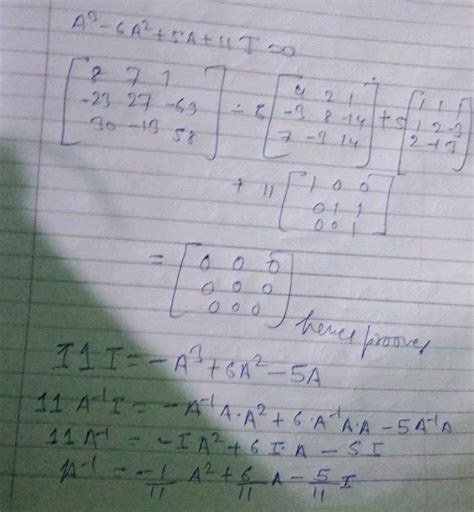 A³ - 6A² + 5A + 11 I = 0
[8 7 1; -23 27 -69; 30 -13 58] - 6 [4 2 1; -3 8 -14; 7 -3 14] + 5 [1 1 1; 1 2 -3; 2 -1 3]
+ 11 [1 0 0; 0 1 1; 0 0 1]
= [0 0 0; 0 0 0; 0 0 0] hence proves
11 I = -A³ + 6A² - 5A
11 A⁻¹I = -A⁻¹A·A² + 6·A⁻¹A·A - 5A⁻¹A
11 A⁻¹ = -IA² + 6 I·A - 5I
A⁻¹ = -1/11 A² + 6/11 A - 5/11 I